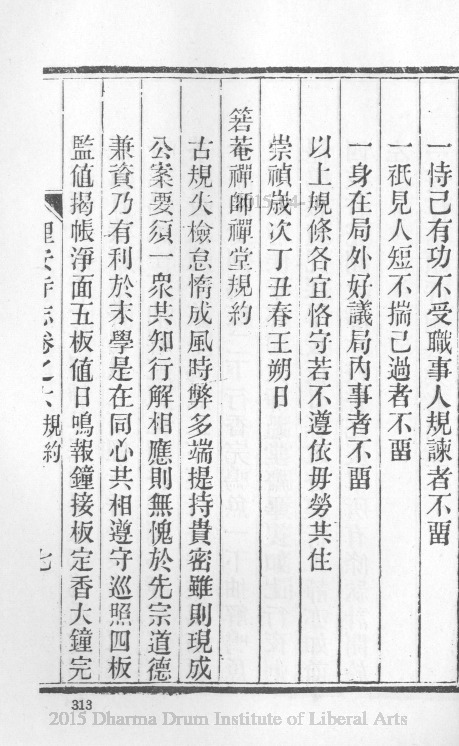 一恃己有功不受職事人規諫者不畱
一祇見人短不揣己過者不畱
一身在局外好議局內事者不畱
以上規條各宜恪守若不遵依毋勞共住
崇禎歲次丁丑春王朔日
箬菴禪師禪堂規約
古規失檢怠惰成風時弊多端提持貴密雖則現成
公案要須一衆共知行解相應則無愧於先宗道德
兼資乃有利於末學是在同心共相遵守巡照四板
監值揭帳淨面五板值日鳴報鐘接板定香大鐘完
理安寺志卷之六 規約 七
313
2015 Dharma Drum Institute of Liberal Arts